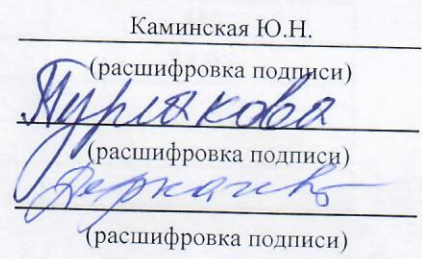 Каминская Ю.Н.
(расшифровка подписи)
Пурлакова
(расшифровка подписи)
(расшифровка подписи)